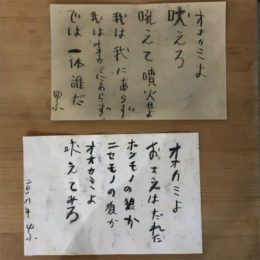 オオカミよ
吠えろ
吼えて噴火せよ
我は我にあらず
我はオオカミにあらず
では一体誰だ
オオカミよ
おまえはだれだ
ホンモノの狼か
ニセモノの狼か
オオカミよ
吠えてみろ
二〇一八年